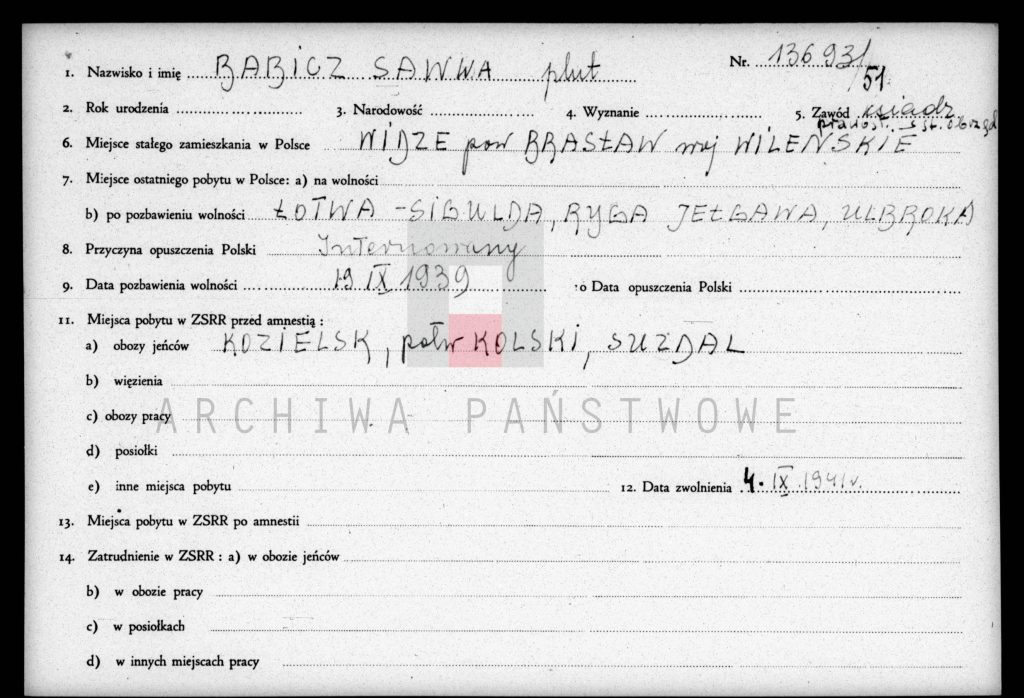 1. Nazwisko i imię BABICZ SAWWA plut Nr. 13693/51
2. Rok urodzenia 3. Narodowość 4. Wyznanie 5. Zawód ksiądz
prawosł.
6. Miejsce stałego zamieszkania w Polsce WIDZE pow BRASŁAW woj WILEŃSKIE
7. Miejsce ostatniego pobytu w Polsce: a) na wolności
b) po pozbawieniu wolności ŁOTWA - SIGULDA, RYGA JEŁGAWA, ULBROKA
8. Przyczyna opuszczenia Polski Internowany
9. Data pozbawienia wolności 19 IX 1939 10 Data opuszczenia Polski
11. Miejsca pobytu w ZSRR przed amnestią :
a) obozy jeńców KOZIELSK, półw KOLSKI, SUZDAL
b) więzienia
c) obozy pracy
ARCHIWA PAŃSTWOWE
d) posiołki
e) inne miejsca pobytu 12. Data zwolnienia 4. IX 1941 r.
13. Miejsca pobytu w ZSRR po amnestii
14. Zatrudnienie w ZSRR : a) w obozie jeńców
b) w obozie pracy
c) w posiołkach
d) w innych miejscach pracy